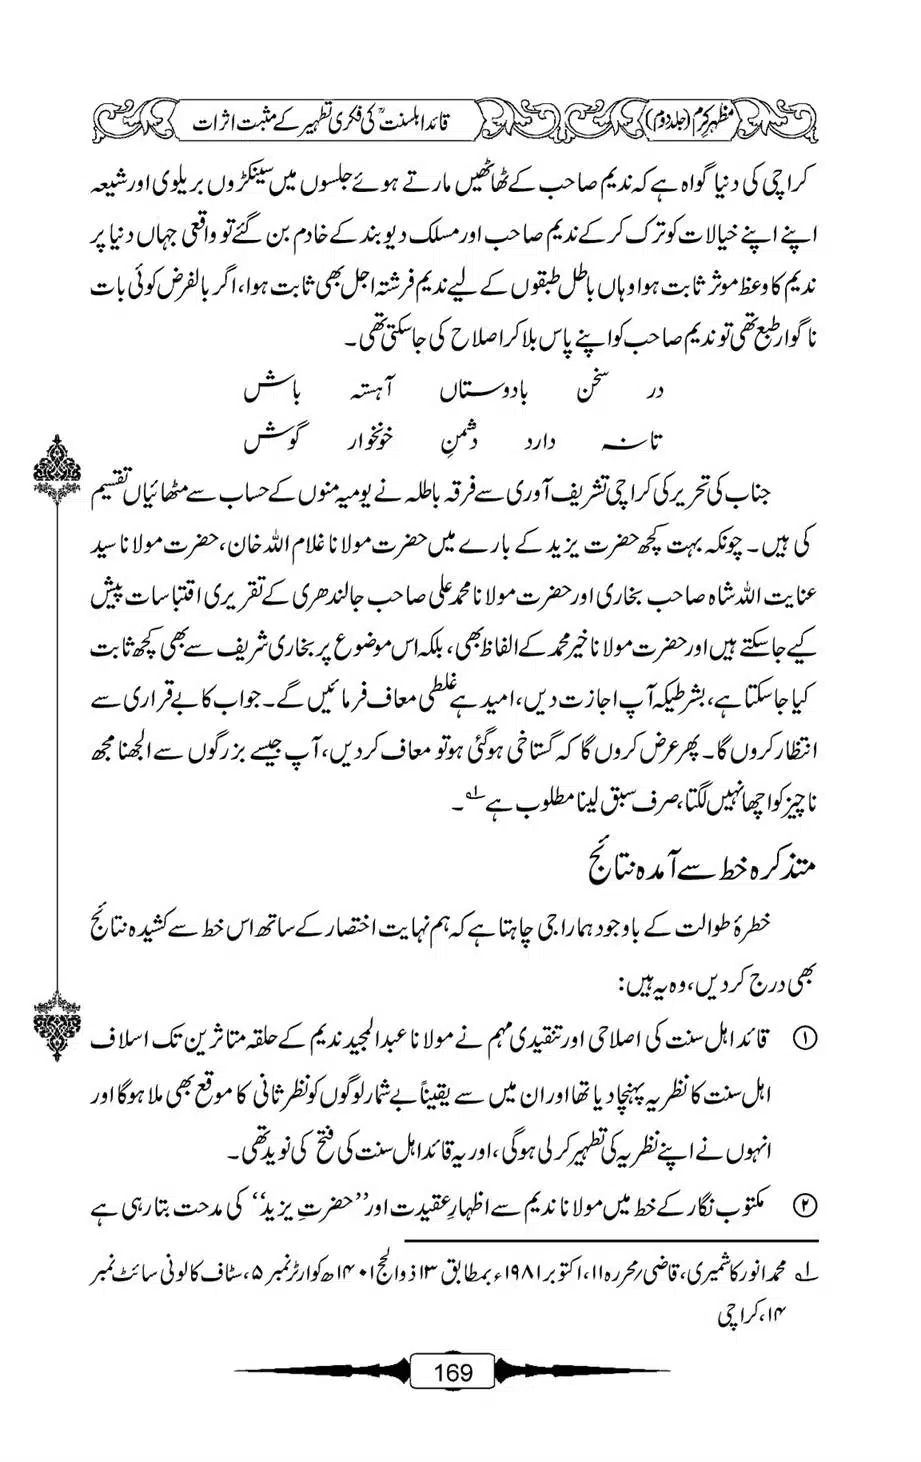 مظہر کرم (جلد دوم)
قائد اہلسنتؒ کی فکری تطہیر کے مثبت اثرات
کراچی کی دنیا گواہ ہے کہ ندیم صاحب کے ٹھاٹھیں مارتے ہوئے جلسوں میں سینکڑوں بریلوی اور شیعہ
اپنے اپنے خیالات کو ترک کر کے ندیم صاحب اور مسلک دیوبند کے خادم بن گئے تو واقعی جہاں دنیا پر
ندیم کا وعظ موثر ثابت ہوا وہاں باطل طبقوں کے لیے ندیم فرشتہ اجل بھی ثابت ہوا، اگر بالفرض کوئی بات
ناگوار طبع تھی تو ندیم صاحب کو اپنے پاس بلا کر اصلاح کی جاسکتی تھی۔
در سخن بادوستاں آہستہ باش
تانہ دارد دشمنِ خونخوار گوش
جناب کی تحریر کی کراچی تشریف آوری سے فرقہ باطلہ نے یومیہ منوں کے حساب سے مٹھائیاں تقسیم
کی ہیں۔ چونکہ بہت کچھ حضرت یزید کے بارے میں حضرت مولانا غلام اللہ خان، حضرت مولانا سید
عنایت اللہ شاہ صاحب بخاری اور حضرت مولانا محمد علی صاحب جالندھری کے تقریری اقتباسات پیش
کیے جاسکتے ہیں اور حضرت مولانا خیر محمد کے الفاظ بھی، بلکہ اس موضوع پر بخاری شریف سے بھی کچھ ثابت
کیا جا سکتا ہے، بشرطیکہ آپ اجازت دیں، امید ہے غلطی معاف فرمائیں گے۔ جواب کا بے قراری سے
انتظار کروں گا۔ پھر عرض کروں گا کہ گستاخی ہوگئی ہو تو معاف کردیں، آپ جیسے بزرگوں سے الجھنا مجھ
ناچیز کو اچھا نہیں لگتا، صرف سبق لینا مطلوب ہے ۱؎۔
متذکرہ خط سے آمدہ نتائج
خطرۂ طوالت کے باوجود ہمارا جی چاہتا ہے کہ ہم نہایت اختصار کے ساتھ اس خط سے کشیدہ نتائج
بھی درج کردیں، وہ یہ ہیں:
① قائد اہل سنت کی اصلاحی اور تنقیدی مہم نے مولانا عبدالمجید ندیم کے حلقہ متاثرین تک اسلاف
اہل سنت کا نظریہ پہنچا دیا تھا اور ان میں سے یقیناً بے شمار لوگوں کو نظر ثانی کا موقع بھی ملا ہوگا اور
انہوں نے اپنے نظریہ کی تطہیر کرلی ہوگی، اور یہ قائد اہل سنت کی فتح کی نوید تھی۔
② مکتوب نگار کے خط میں مولانا ندیم سے اظہارِ عقیدت اور ’’حضرتِ یزید‘‘ کی مدحت بتا رہی ہے
۱؎ محمد انور کاشمیری، قاضی/محررہ ۱۱، اکتوبر ۱۹۸۱ء بمطابق ۱۳ ذوالحج ۱۴۰۱ھ کوارٹر نمبر ۵، سٹاف کالونی سائٹ نمبر
۱۴، کراچی
169